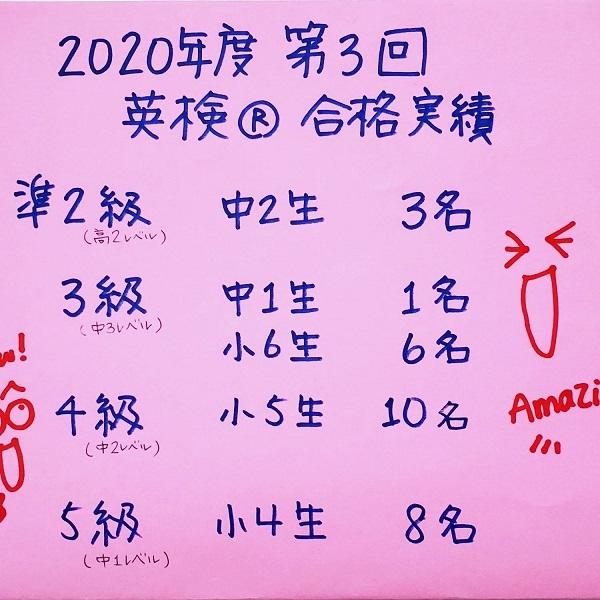 2020年度 第3回
英検® 合格実績
準2級 中2生 3名
(高2レベル)
3級 中1生 1名
(中3レベル)
小6生 6名
4級 小5生 10名
(中2レベル)
5級 小4生 8名
(中1レベル)
Amazi